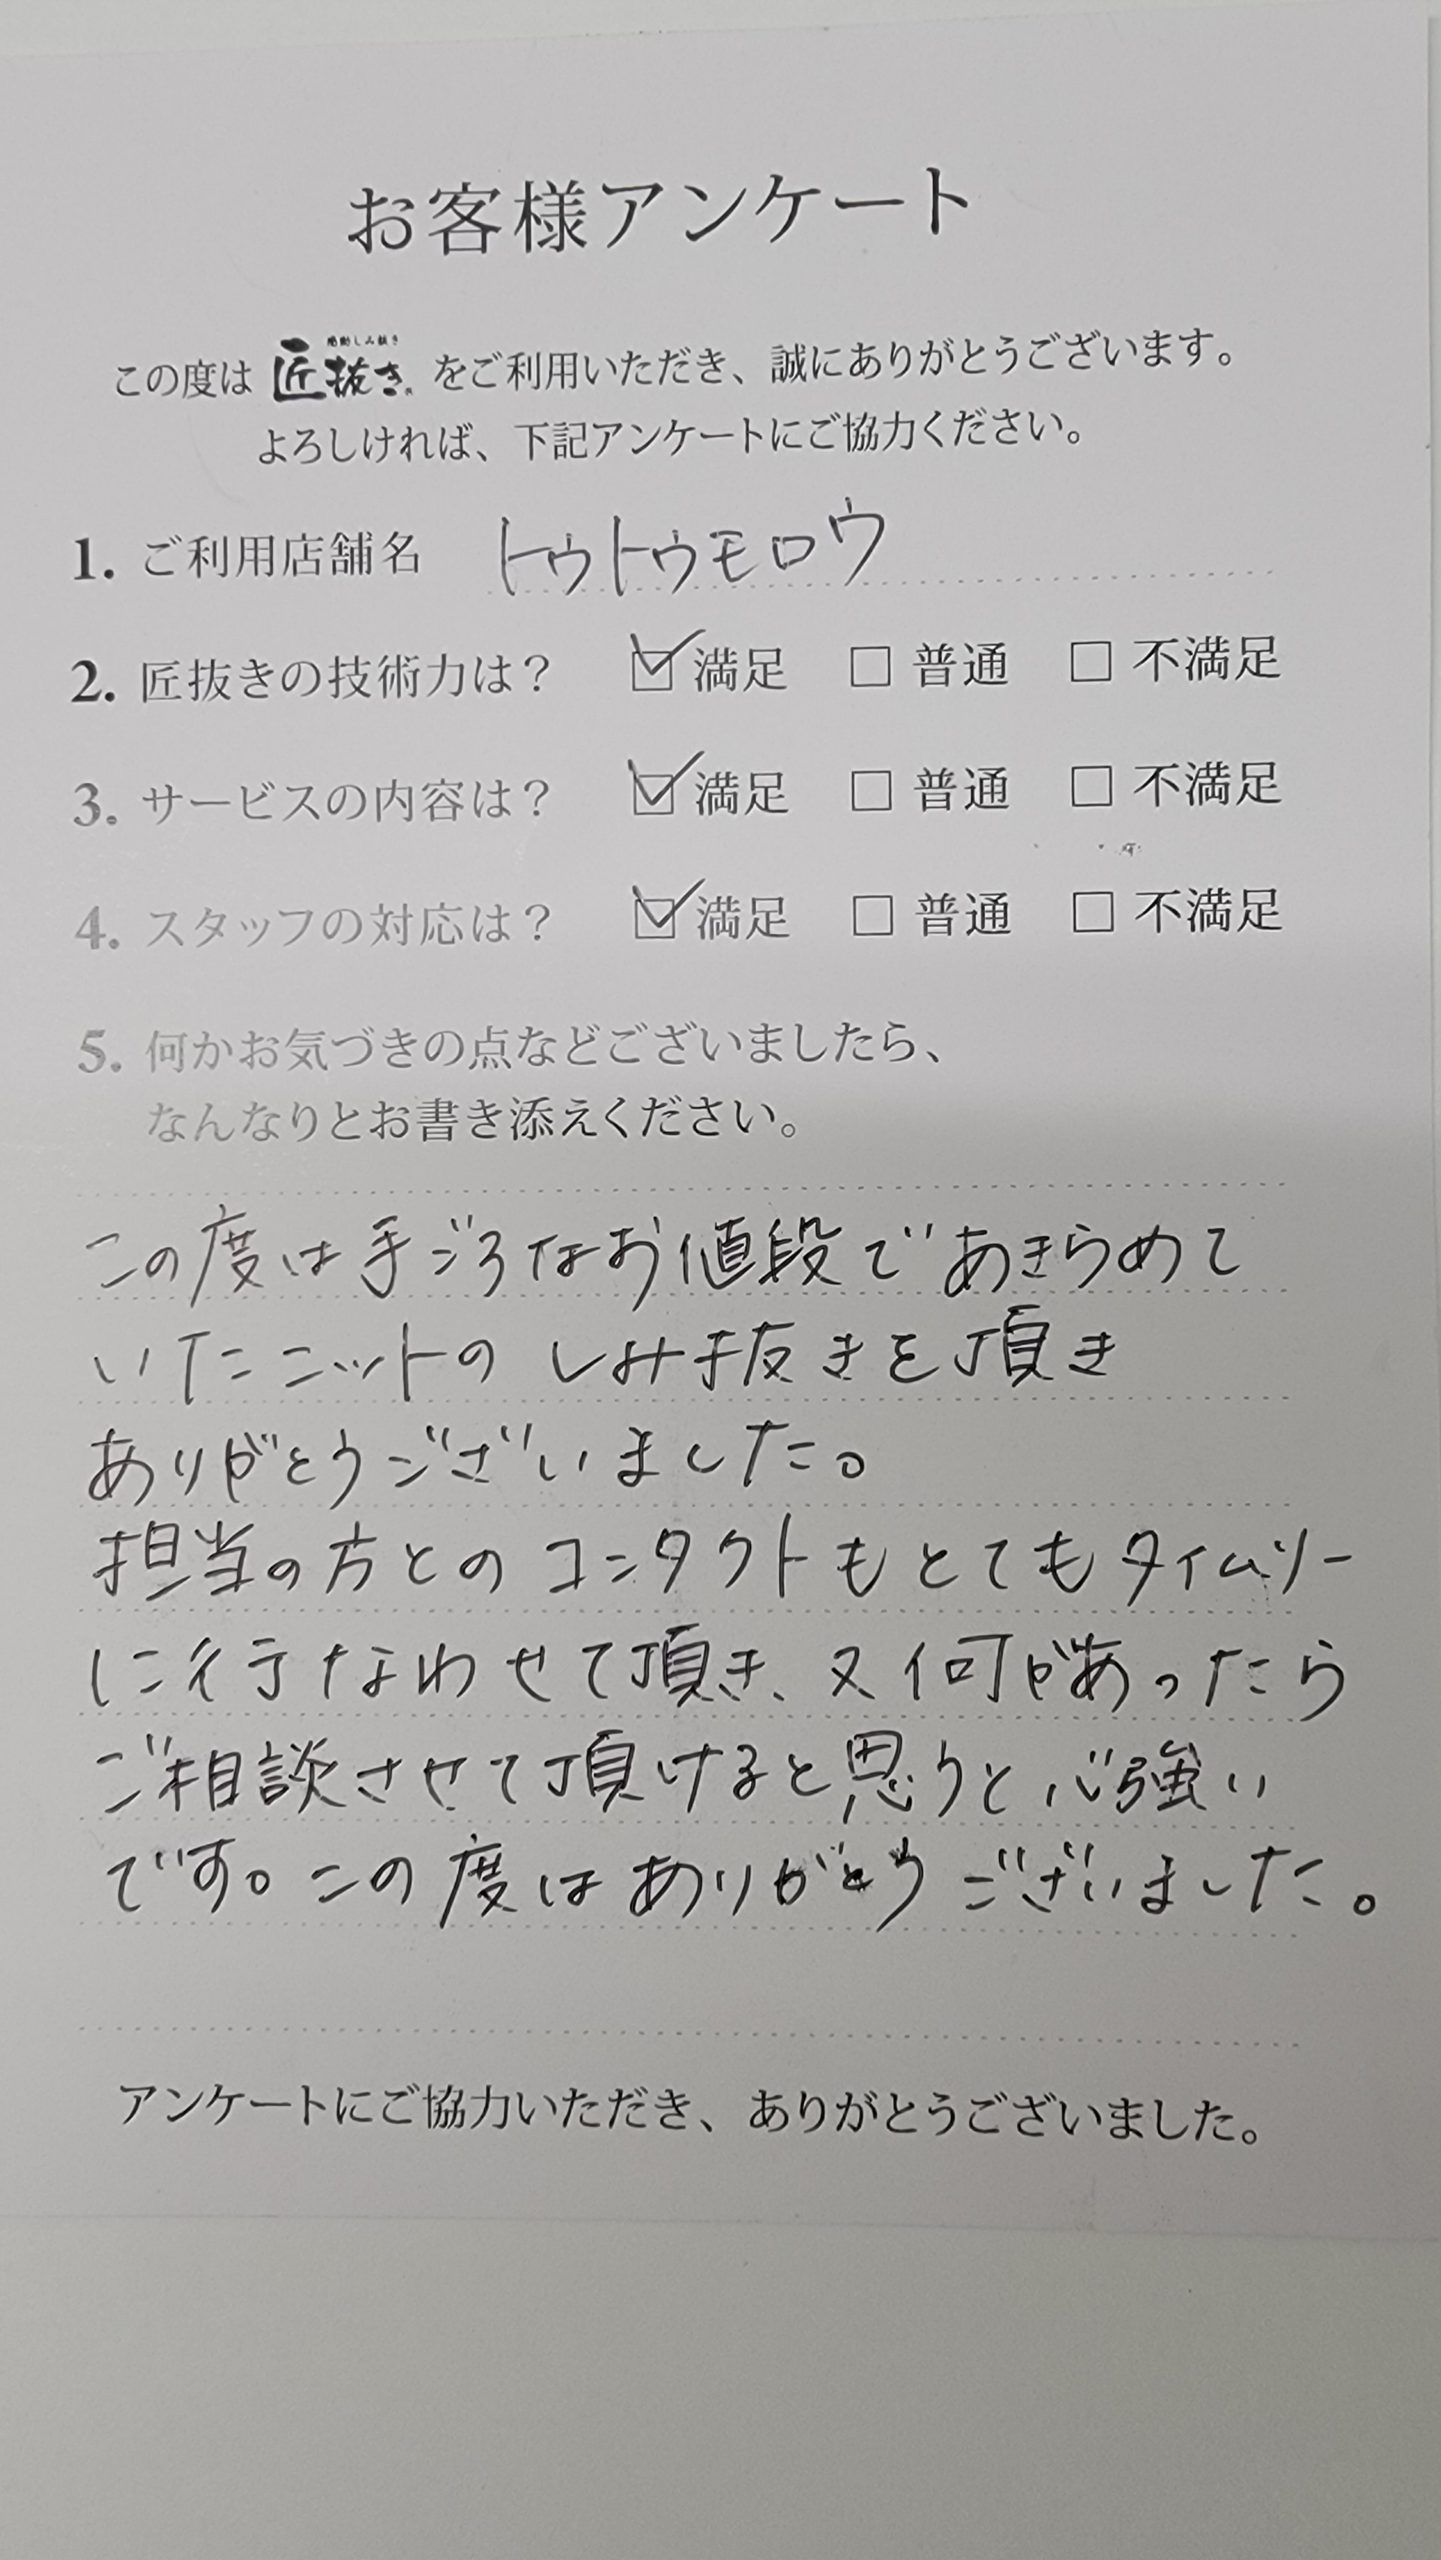 お客様アンケート
感動しみ抜き
この度は 匠抜き をご利用いただき、誠にありがとうございます。
よろしければ、下記アンケートにご協力ください。
1. ご利用店舗名 トゥトゥモロウ
2. 匠抜きの技術力は？ ☑ 満足 □ 普通 □ 不満足
3. サービスの内容は？ ☑ 満足 □ 普通 □ 不満足
4. スタッフの対応は？ ☑ 満足 □ 普通 □ 不満足
5. 何かお気づきの点などございましたら、
なんなりとお書き添えください。
この度は手ごろなお値段であきらめて
いたニットのしみ抜きを頂き
ありがとうございました。
担当の方とのコンタクトもとてもタイムリー
に行なわせて頂き、又何があったら
ご相談させて頂けると思うと心強い
です。この度はありがとうございました。
アンケートにご協力いただき、ありがとうございました。